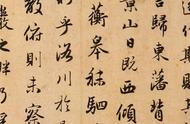 言歸東藩背
景山日既西傾
蘅皋秣駟
乎洛川於
散俯則未察
巖之畔乃